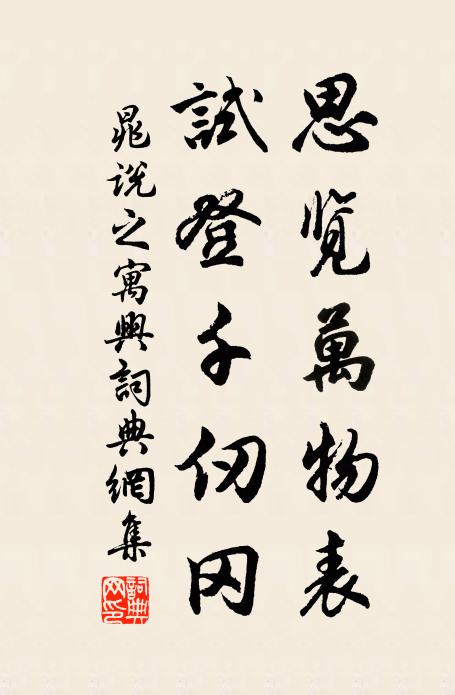 思覽萬物表
試登千仞冈
晁說之寓興詞典網集
詞典网印